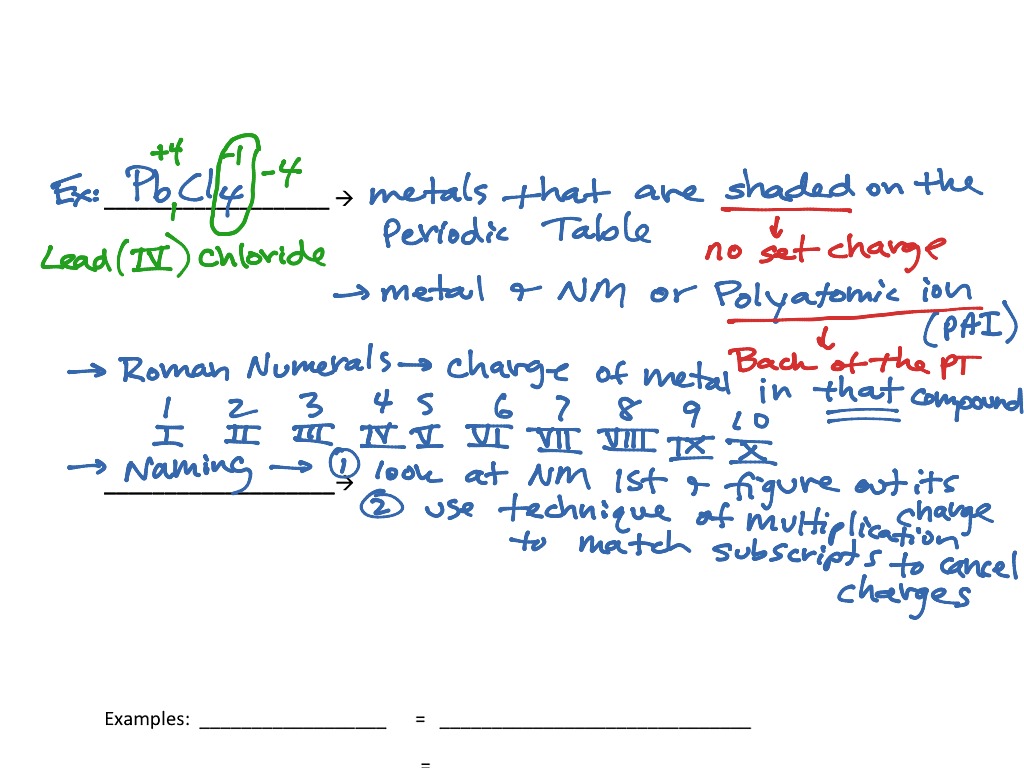 +4 -1 -4
Ex: PbCl4 → metals that are shaded on the
1
Periodic Table
Lead (IV) chloride
no set charge
→ metal & NM or Polyatomic ion
(PAI)
Back of the PT
→ Roman Numerals → charge of metal in that compound
1 2 3 4 5 6 7 8 9 10
I II III IV V VI VII VIII IX X
→ Naming → ① look at NM 1st & figure out its
charge
② use technique of multiplication
to match subscripts to cancel
charges
Examples: __________________ = ______________________________
=